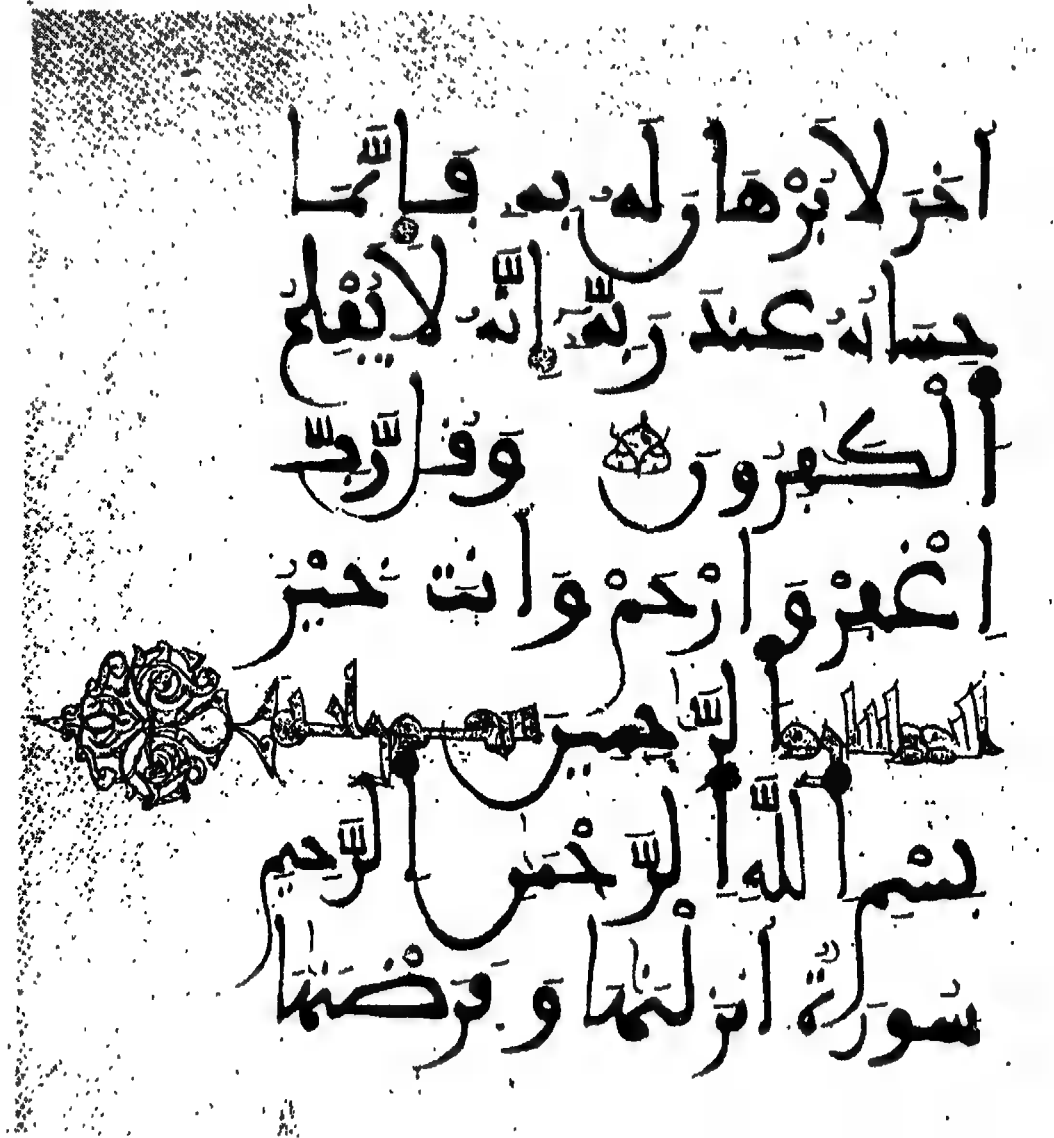 اٰخَرَ لَا بُرْهَانَ لَهُۥ بِهِۦ فَإِنَّمَا
حِسَابُهُۥ عِندَ رَبِّهِۦٓ إِنَّهُۥ لَا يُفْلِحُ
اَلْكَٰفِرُونَ وَقُل رَّبِّ
اِغْفِرْ وَارْحَمْ وَأَنتَ خَيْرُ
اُلرَّٰحِمِينَ
بِسْمِ اِللَّهِ اِلرَّحْمَٰنِ اِلرَّحِيمِ
سُورَةٌ أَنزَلْنَٰهَا وَفَرَضْنَٰهَا